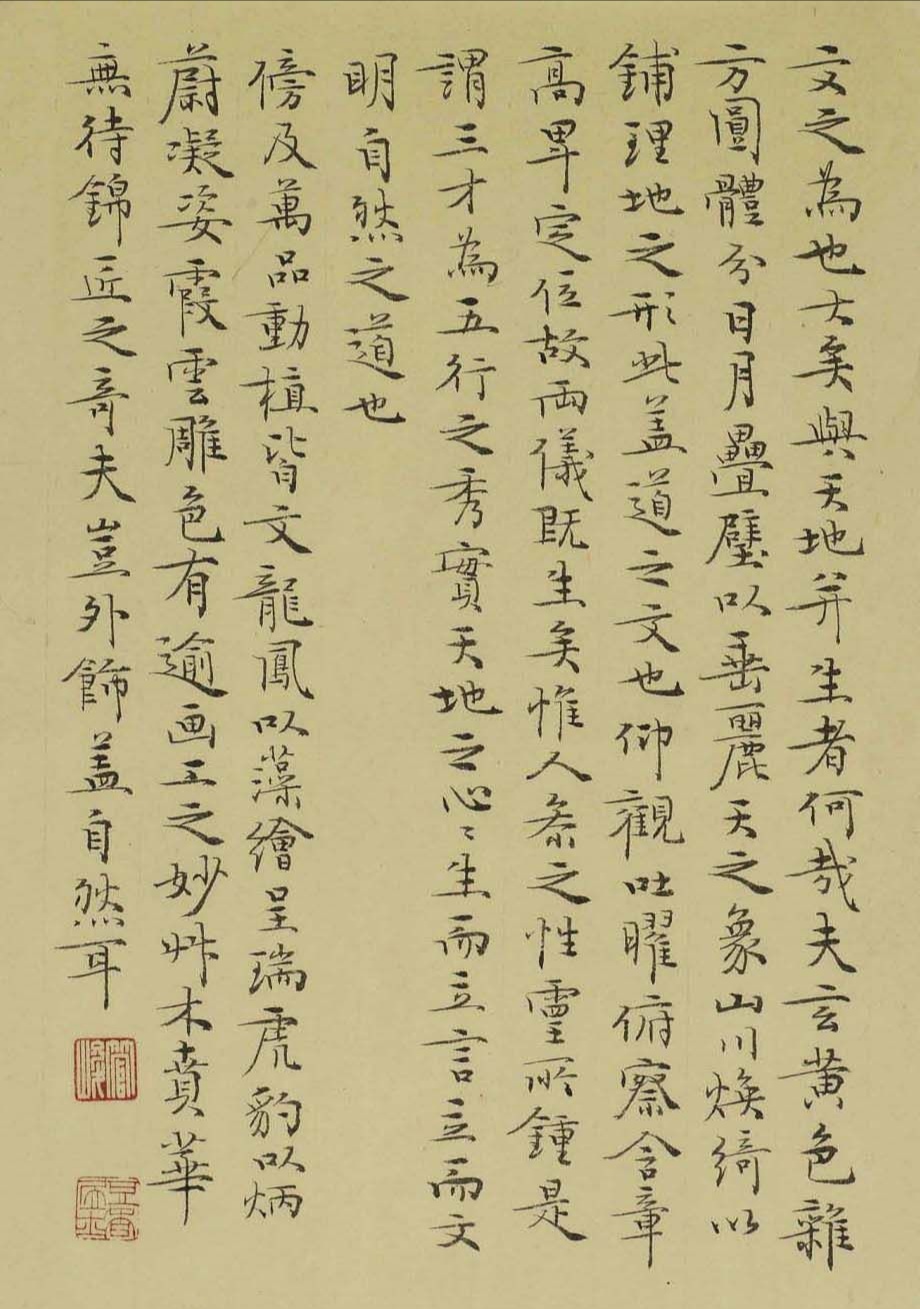 文之為也大矣與天地并生者何哉夫玄黃色雜
方圓體分日月疊璧以垂麗天之象山川煥綺以
鋪理地之形此盖道之文也仰觀吐曜俯察含章
高卑定位故兩儀既生矣惟人叅之性靈所鍾是
謂三才為五行之秀實天地之心〻生而立言立而文
明自然之道也
傍及萬品動植皆文龍鳳以藻繪呈瑞虎豹以炳
蔚凝姿霞雲雕色有逾画工之妙艸木賁華
無待錦匠之奇夫豈外飾盖自然耳